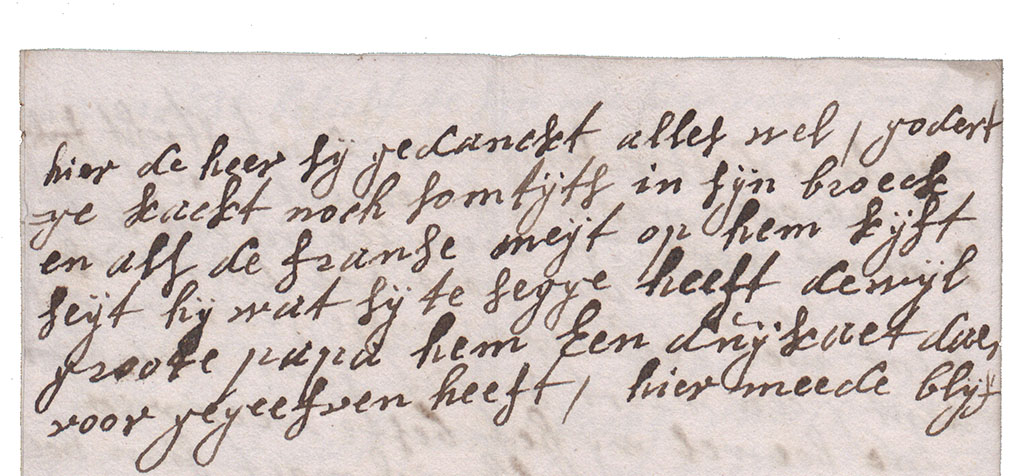 hier de heer sij gedanckt alles wel, godert
ge kackt noch somtijts in sijn broeck
en als de franse meijt op hem kijft
seijt hij wat sij te segge heeft dewijl
groote papa hem een duijkaet daer
voor gegeefven heeft, hier meede blijf